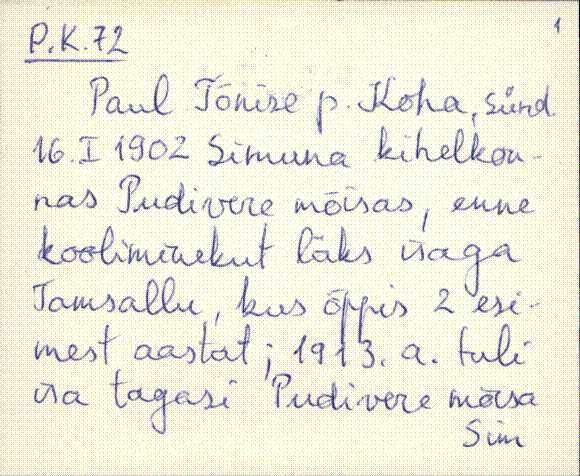 1
P.K.72
Paul Tõnise p. Koha, sünd.
16. I 1902 Simuna kihelkon-
nas Pudivere mõisas, enne
kooliminekut läks isaga
Tamsallu, kus õppis 2 esi-
mest aastat; 1913. a. tuli
isa tagasi Pudivere mõisa
Sim